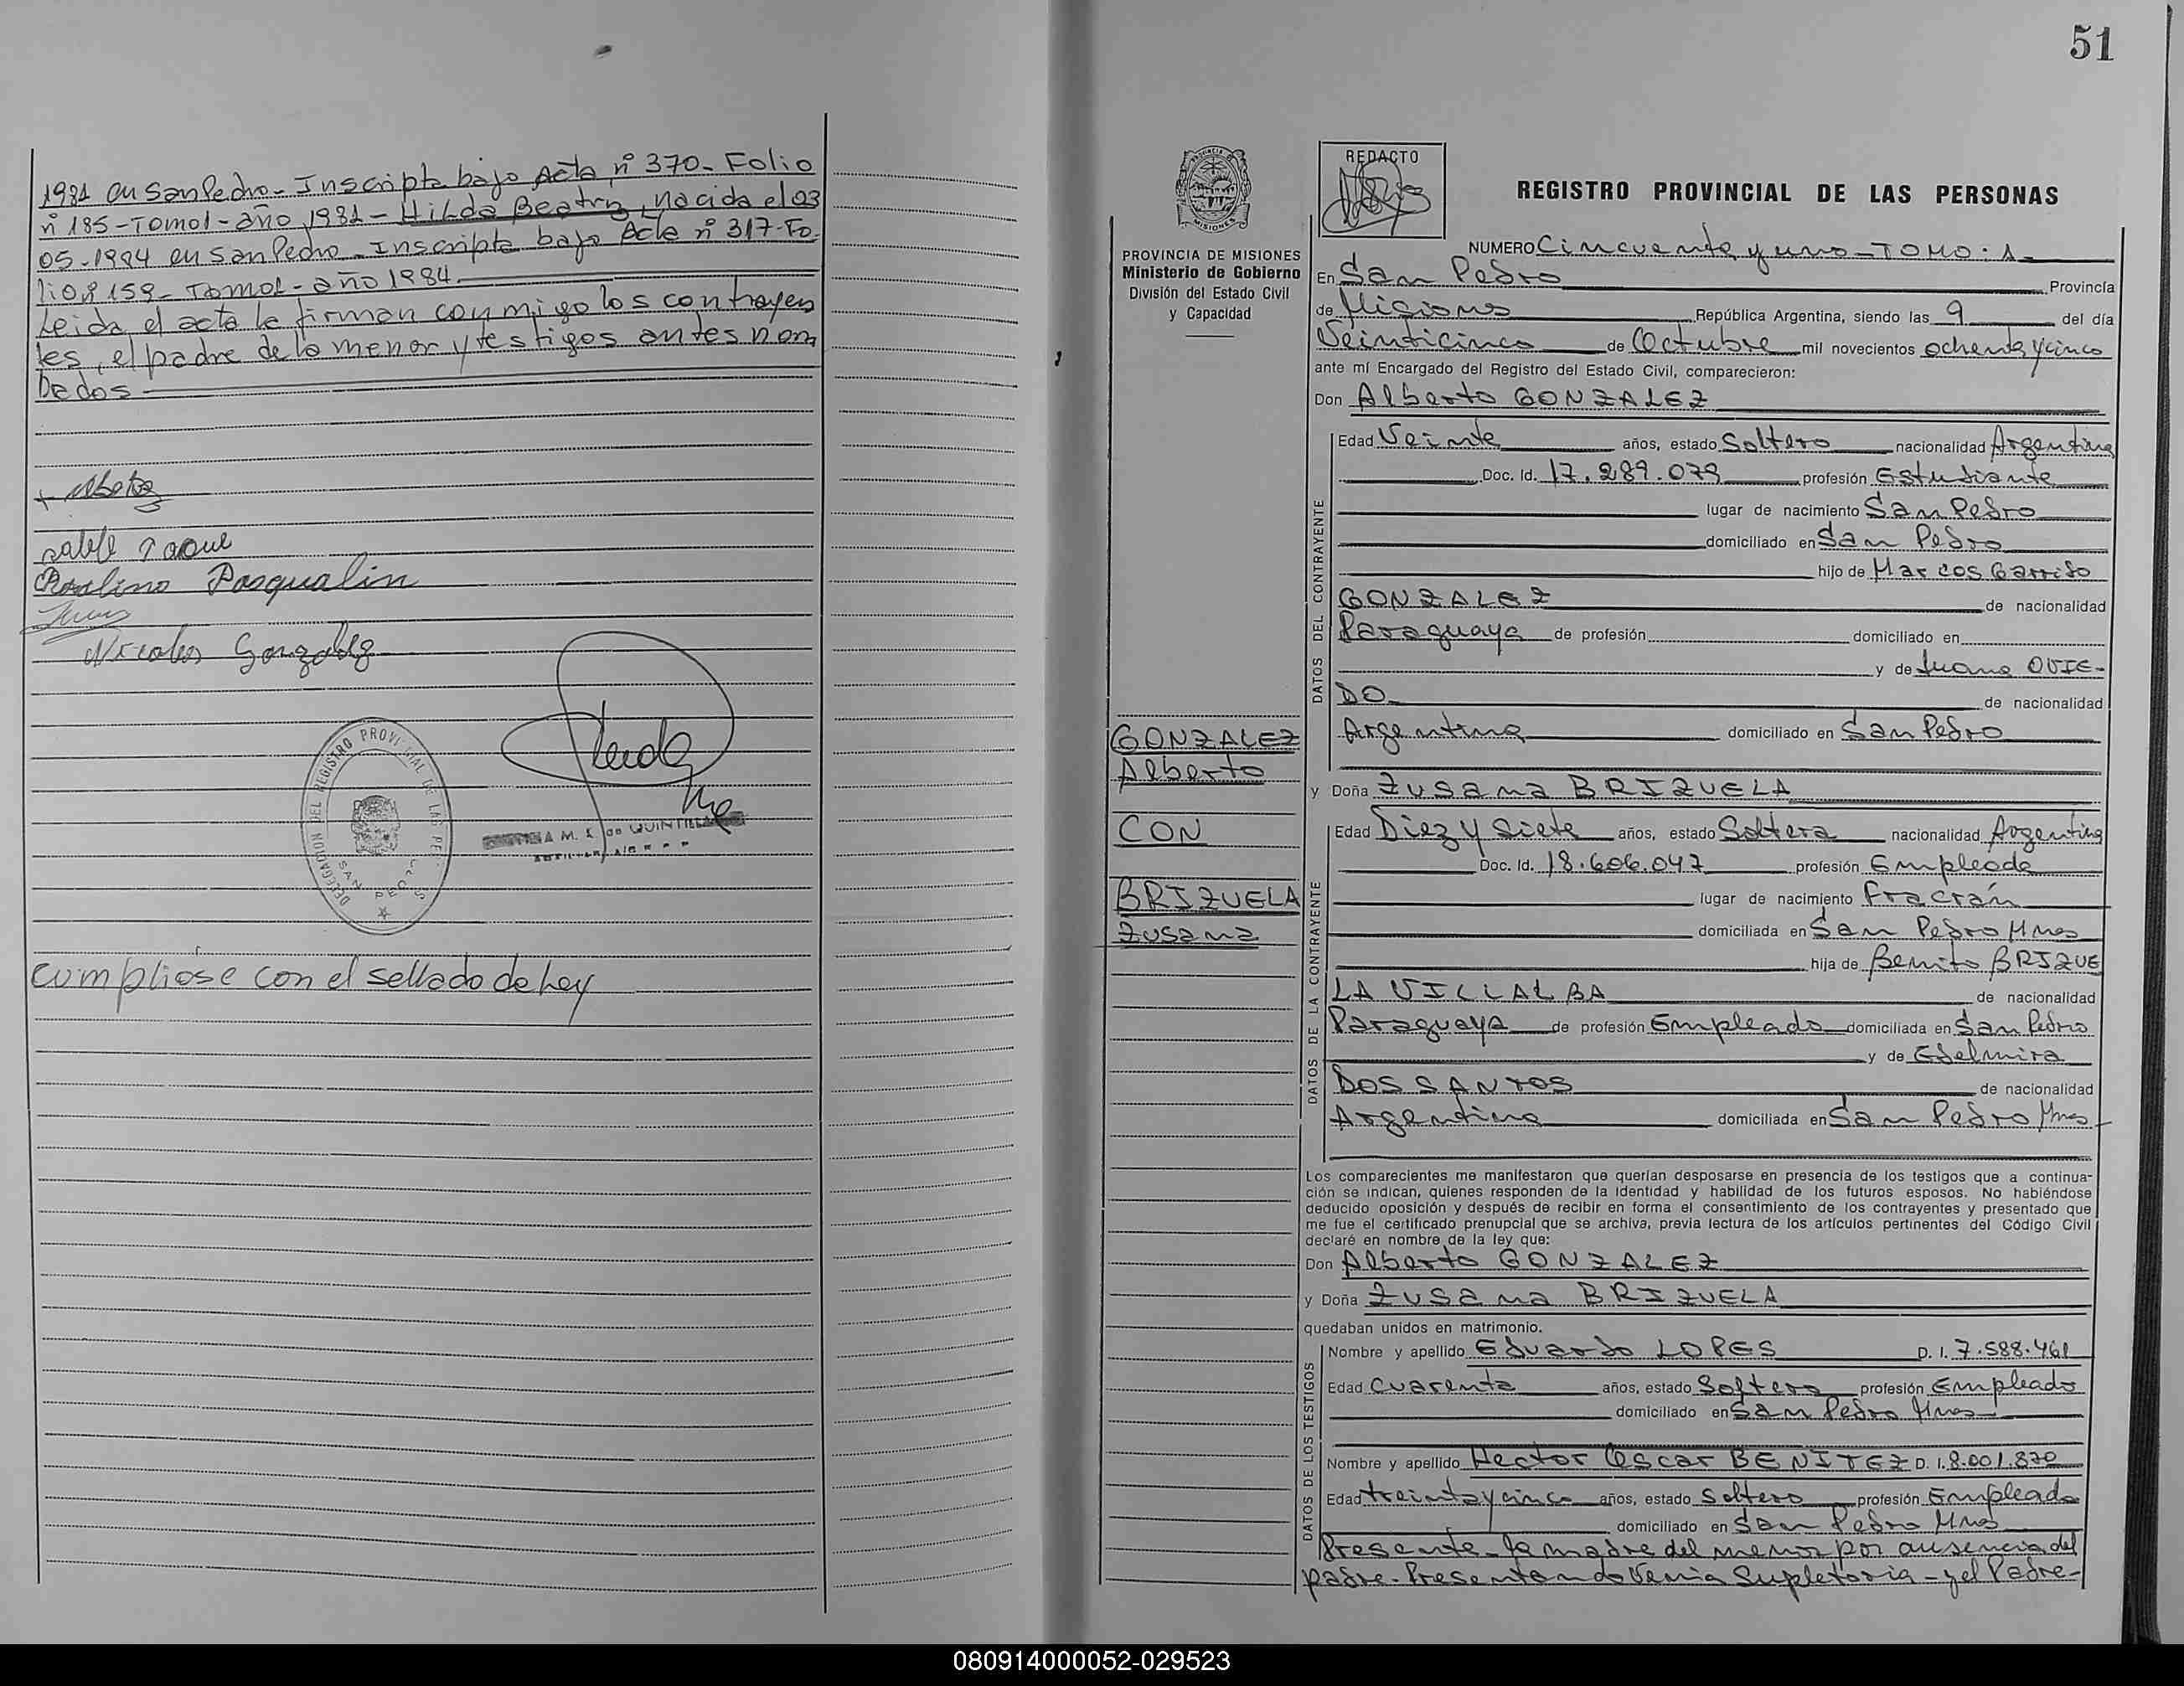 1981 en San Pedro - Inscripta bajo Acta nº 370 - Folio
nº 185 - Tomo 1 - año 1981 - Hilda Beatriz, nacida el 03
05-1984 en San Pedro - Inscripta bajo Acta nº 317 - Fo-
lio nº 159 - Tomo 1 - año 1984
Leida el acta la firman conmigo los contrayen
tes, el padre de la menor y testigos antes nom
brados
Pasqualin
Nicolas Gonzalez
DELEGACION DEL REGISTRO PROVINCIAL DE LAS PER
SAN PEDRO
A M. de QUINTILLA
cumpliose con el sellado de Ley
51
PROVINCIA DE MISIONES
Ministerio de Gobierno
División del Estado Civil
y Capacidad
GONZALEZ
Alberto
CON
BRIZUELA
Zusana
REDACTO
REGISTRO PROVINCIAL DE LAS PERSONAS
NUMERO Cincuenta y uno - TOMO: 1
En San Pedro Provincia
de Misiones República Argentina, siendo las 9 del día
Veinticinco de Octubre mil novecientos ochenta y cinco
ante mí Encargado del Registro del Estado Civil, comparecieron:
Don Alberto GONZALEZ
DATOS DEL CONTRAYENTE
Edad Veinte años, estado Soltero nacionalidad Argentina
Doc. Id. 17.289.079 profesión Estudiante
lugar de nacimiento San Pedro
domiciliado en San Pedro
hijo de Marcos Garrido
GONZALEZ de nacionalidad
Paraguaya de profesión domiciliado en
y de Juana OVIE-
DO de nacionalidad
Argentina domiciliado en San Pedro
y Doña Zusana BRIZUELA
DATOS DE LA CONTRAYENTE
Edad Diez y Siete años, estado Soltera nacionalidad Argentina
Doc. Id. 18.606.047 profesión Empleada
lugar de nacimiento Fracrán
domiciliada en San Pedro Mnes
hija de Benito BRIZUE
LA VILLALBA de nacionalidad
Paraguaya de profesión Empleado domiciliada en San Pedro
y de Edelmira
DOS SANTOS de nacionalidad
Argentina domiciliada en San Pedro Mnes
Los comparecientes me manifestaron que querían desposarse en presencia de los testigos que a continua-
ción se indican, quienes responden de la identidad y habilidad de los futuros esposos. No habiéndose
deducido oposición y después de recibir en forma el consentimiento de los contrayentes y presentado que
me fue el certificado prenupcial que se archiva, previa lectura de los artículos pertinentes del Código Civil
declaré en nombre de la ley que:
Don Alberto GONZALEZ
y Doña Zusana BRIZUELA
quedaban unidos en matrimonio.
DATOS DE LOS TESTIGOS
Nombre y apellido Eduardo LOPES D. I. 7.588.461
Edad Cuarenta años, estado Soltero profesión Empleado
domiciliado en San Pedro Mnes
Nombre y apellido Hector Oscar BENITEZ D. I. 8.001.870
Edad treinta y cinco años, estado Soltero profesión Empleado
domiciliado en San Pedro Mnes
Presente - la madre del menor por ausencia del
padre - Presentando Venia Supletoria - y el Padre -
080914000052-029523